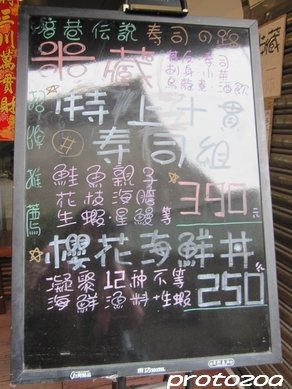 暗巷传說 寿司の路
米藏
特上十貫
壽司組
招牌推薦
鮭魚親子
花枝海膽
生蝦星鰻等
390元
櫻花海鮮丼
凝聚12种不等
海鮮漁料+生蝦
250元
protozoa